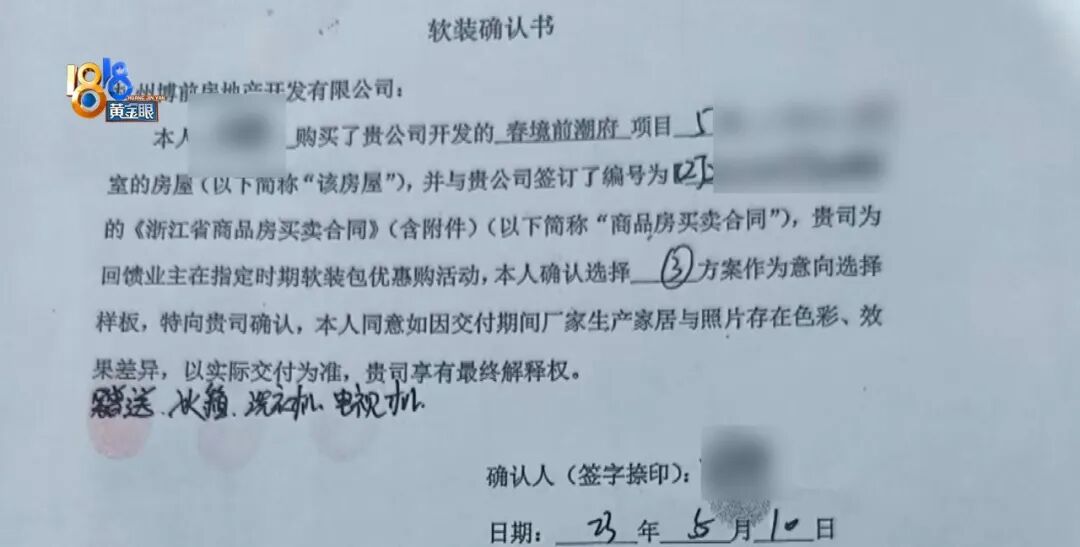 软装确认书
1818
HUANG JIN YAN
黄金眼
州博前房地产开发有限公司：
本人 购买了贵公司开发的 春境前潮府 项目 5
室的房屋（以下简称“该房屋”），并与贵公司签订了编号为【2
的《浙江省商品房买卖合同》（含附件）（以下简称“商品房买卖合同”），贵司为
回馈业主在指定时期软装包优惠购活动，本人确认选择 ③ 方案作为意向选择
样板，特向贵司确认，本人同意如因交付期间厂家生产家居与照片存在色彩、效
果差异，以实际交付为准，贵司享有最终解释权。
赠送、冰箱、洗衣机、电视机.
确认人（签字捺印）：
日期： 23 年 5 月 10 日